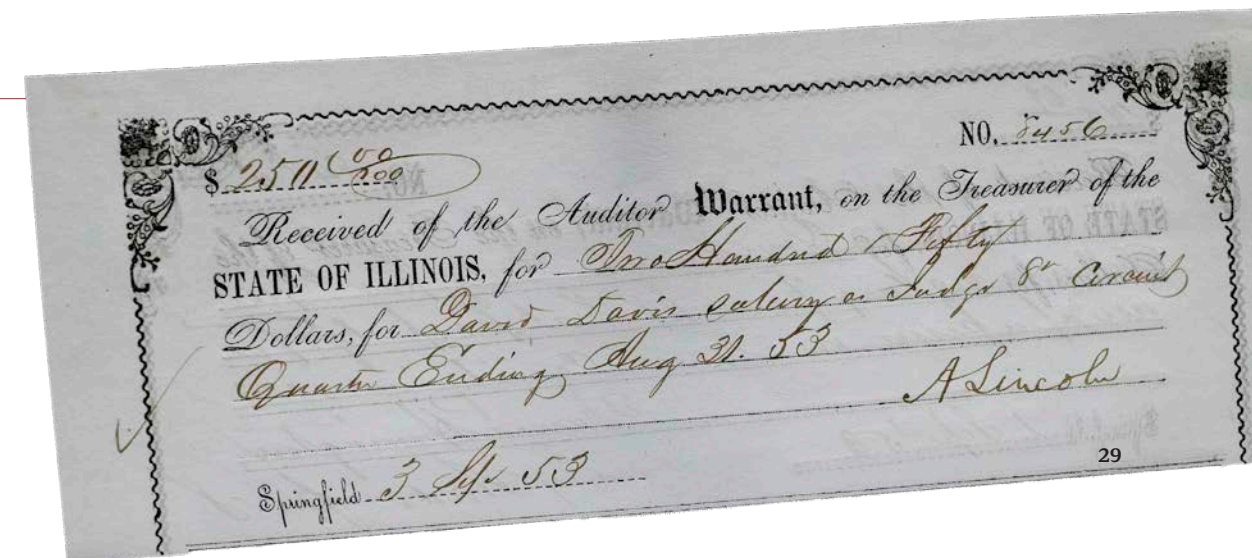 NO. 8456
$ 250 00/100
Received of the Auditor Warrant, on the Treasurer of the
STATE OF ILLINOIS, for Two Hundred & Fifty
Dollars, for David Davis salary as Judge 8th Circuit
Quarter Ending Aug 31. 53
A Lincoln
Springfield 3 Sep 53
29